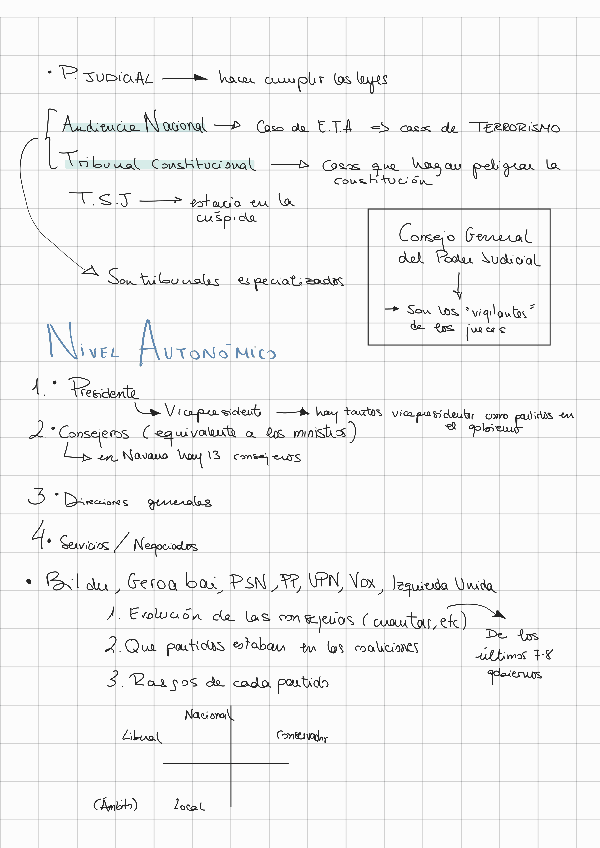 · P. JUDICIAL → hacer cumplir las leyes
Audiencia Nacional → Caso de E.T.A ⇒ casos de TERRORISMO
Tribunal Constitucional → Casos que hagan peligrar la
constitución
T.S.J → estaría en la
cúspide
Consejo General
del Poder Judicial
→ Son los "vigilantes"
de los jueces
Son tribunales especializados
NIVEL AUTONÓMICO
1. · Presidente
→ Vicepresidente → hay tantos vicepresidentes como partidos en
el gobierno
2 · Consejeros (equivalente a los ministros)
→ en Navarra hay 13 consejeros
3 · Direciones generales
4. · Servicios / Negociados
· Bildu, Geroa bai, PSN, PP, UPN, Vox, Izquierda Unida
1. Evolución de las consejerías (cuantas, etc)
De los
últimos 7-8
gobiernos
2. Que partidos estaban en las coaliciones
3. Rasgos de cada partido
Nacional
Liberal
Conservador
(Ámbito)
Local